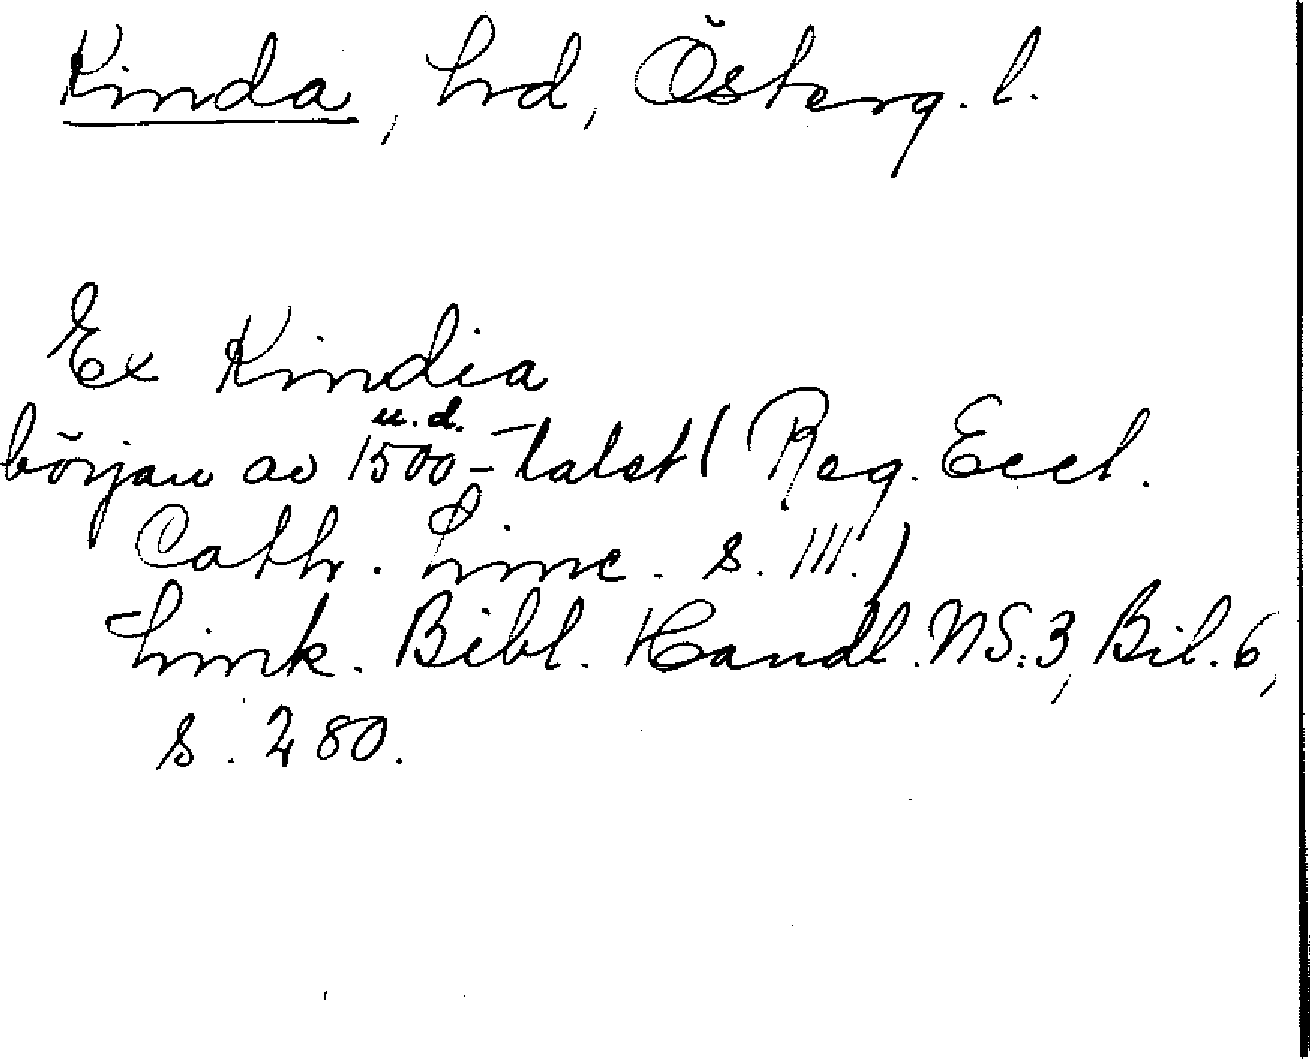 Kinda, hd, Österg. l.
Ex Kindia
u.d.
början av 1500-talet (Reg. Eccl.
Cath. Linc. s. III.)
Link. Bibl. Handl. NS:3, Bil. 6,
s. 280.